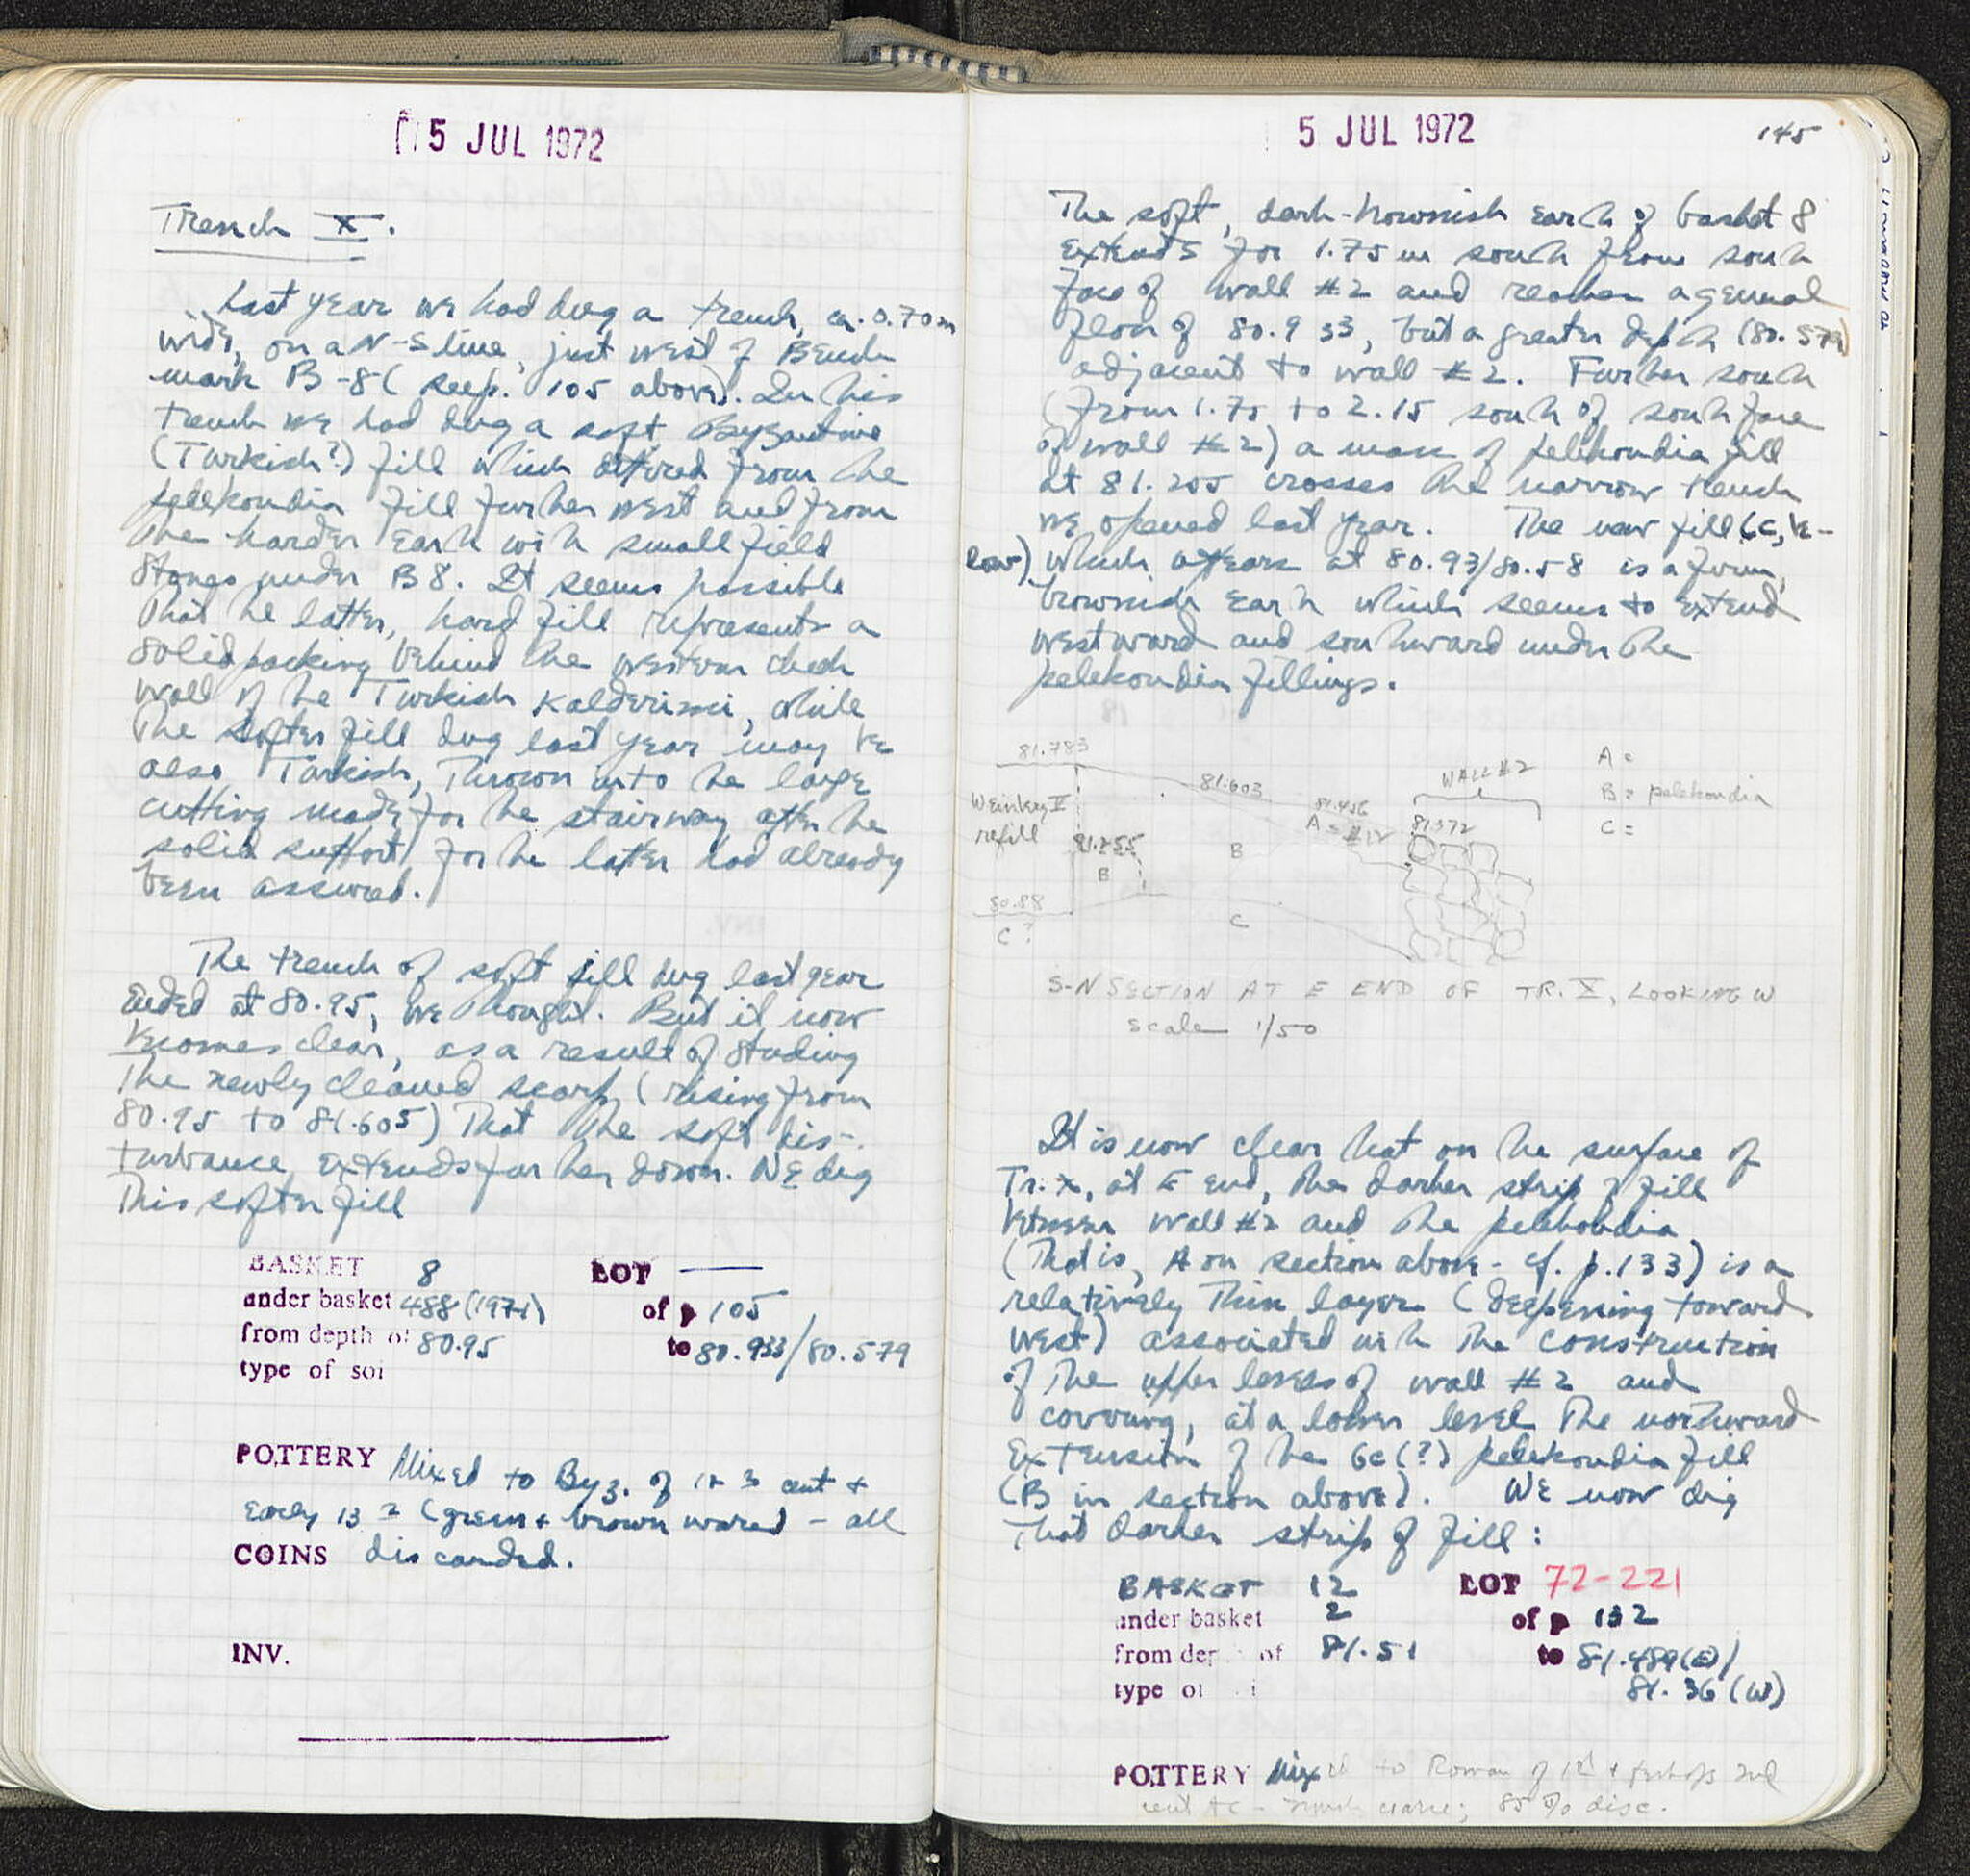 5 JUL 1972
Trench X.
Last year we had dug a trench, ca. 0.70m
wide, on a N-S line, just west of Bench
mark B-8 (see p. 105 above). In this
trench we had dug a soft Byzantine
(Turkish?) fill which differed from the
pelekoudia fill further west and from
the harder earth with small field
stones under B8. It seems possible
that the latter, hard fill represents a
solid packing behind the western check
wall of the Turkish Kalderimi, while
the softer fill dug last year may be
also Turkish, thrown into the large
cutting made for the stairway after the
solid support for the latter had already
been assured.
The trench of soft fill dug last year
ended at 80.95, we thought. But it now
becomes clear, as a result of studing
the newly cleaned scarp (rising from
80.95 to 81.605) that the soft dis-
turbance extends further down. We dig
this softer fill
BASKET 8 LOT —
under basket 488 (1971) of p 105
from depth of 80.95 to 80.933/80.579
type of soi
POTTERY Mixed to Byz. of 12 3 cent +
early 13 2 (green + brown wares) - all
COINS discarded.
INV.
5 JUL 1972
145
The soft, dark-brownish earth of basket 8
extends for 1.75 m south from south
face of wall #2 and reaches a general
floor of 80.933, but a greater depth (80.579)
adjacent to wall #2. Further south
(from 1.75 to 2.15 south of south face
of wall #2) a mass of pelekoudia fill
at 81.255 crosses the narrow trench
we opened last year. The new fill (C, be-
low) which appears at 80.93/80.58 is a firm,
brownish earth which seems to extend
westward and southward under the
pelekoudia fillings.
81.783
81.603
81.456
WALL #2
A =
B = pelekoudia
C =
Weinberg
refill
A = #12
81.372
81.255
B
B
80.88
C ?
C
S-N SECTION AT E END OF TR. X, LOOKING W
scale 1/50
It is now clear that on the surface of
Tr. X, at E end, the darker strip of fill
between wall #2 and the pelekoudia
(that is, A on section above - cf. p. 133) is a
relatively thin layer (deepening toward
west) associated with the construction
of the upper levels of wall #2 and
covering, at a lower level the northward
extension of the 6c (?) pelekoudia fill
(B in section above). We now dig
that darker strip of fill:
BASKET 12 LOT 72-221
under basket 2 of p 132
from dep of 81.51 to 81.489 (E)/
type of i 81.36 (W)
POTTERY Mixed to Roman of 1st + perhaps 2nd
cent AC - coarse; 85 % disc.